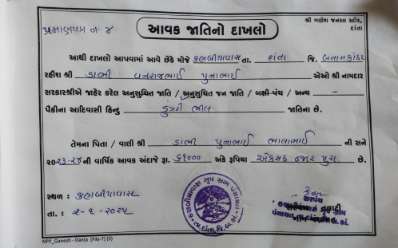 પ્રમાણપત્ર નં ૪
શ્રી ગણેશ જનરલ સ્ટોર,
દાંતા
આવક જાતિનો દાખલો
આથી દાખલો આપવામાં આવે છેકે મોજે કણબીયાવાસ તા. દાંતા જિ. બનાસકાંઠા
રહીશ શ્રી ડાભી ધનરાજભાઈ પુનાભાઈ એઓ શ્રી નામદાર
સરકારશ્રીએ જાહેર કરેલા અનુસુચિત જાતિ / અનુસુચિત જન જાતિ / બક્ષી-પંચ / અન્ય -
પૈકીના આદિવાસી હિન્દુ ડુંગરી ભીલ જાતિના છે.
તેમના પિતા / વાલી શ્રી ડાભી પુનાભાઈ ભાલાભાઈ ની સને
૨૦૨૩-૨૪ ની વાર્ષિક આવક અંદાજે રૂા. ૬૧૦૦૦ અંકે રૂપિયા એકસઠ હજાર પુરા છે.
સ્થળ : કણબીયાવાસ
તા. : ૨-૧-૨૦૨૫
સરપંચ